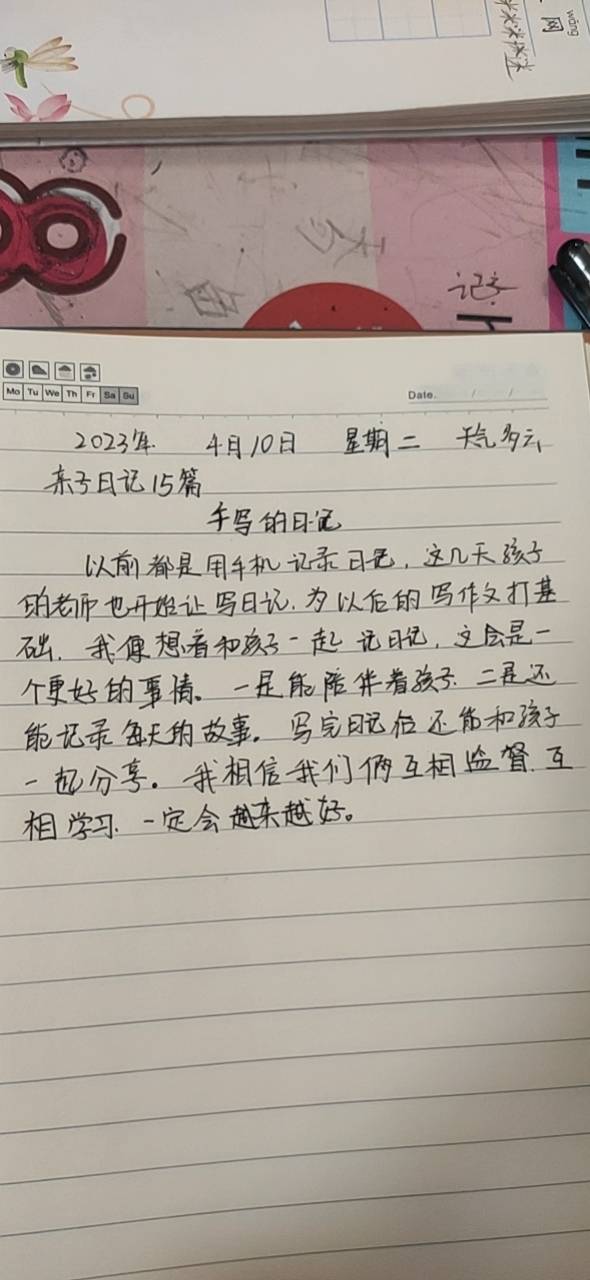 wǎng
网
记录
Mo Tu We Th Fr Sa Su
Date. / /
2023年. 4月10日 星期二 天气多云
亲子日记15篇
手写的日记
以前都是用手机记录日记,这几天孩子
的老师也开始让写日记.为以后的写作文打基
础.我便想着和孩子一起记日记,这会是一
个更好的事情。一是能陪伴着孩子.二是还
能记录每天的故事。写完日记后还能和孩子
一起分享。我相信我们俩互相监督.互
相学习.一定会越来越好。